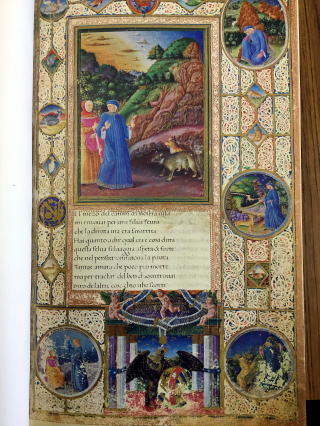 El mezo del camin di nostra vita
mi ritrovai per una selva scura
che la diritta via era smarrita
Hai quanto a dir qual era e cosa dura
questa selva selvaggia aspra e forte
che nel pensier rinova la paura
Tante amara che poco piu morte
ma per trattar del ben chio vi trovai
diro de laltre cose chio vho scorte